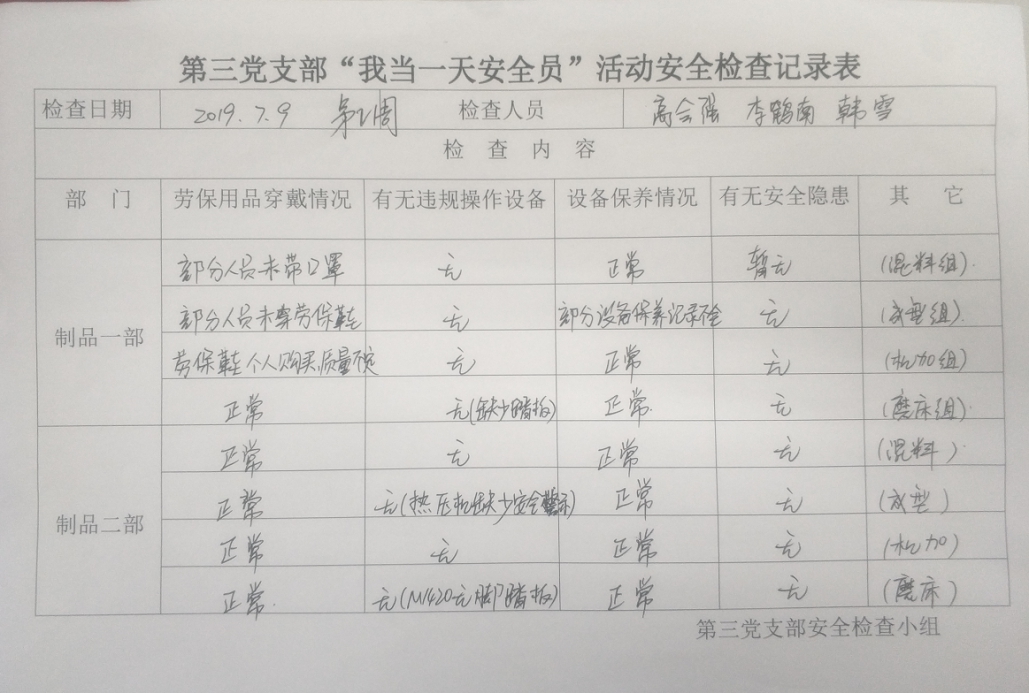 第三党支部“我当一天安全员”活动安全检查记录表
检查日期 2019.7.9 第2周 检查人员 高会强 李鹤南 韩雪
检 查 内 容
部 门 劳保用品穿戴情况 有无违规操作设备 设备保养情况 有无安全隐患 其 它
部分人员未带口罩 无 正常 暂无 (混料组).
部分人员未穿劳保鞋 无 部分设备保养记录不全 无 (成型组).
制品一部
劳保鞋个人购买,质量不定 无 正常 无 (机加组)
正常 无(缺少踏板) 正常. 无 (磨床组).
正常 无 正常 无 (混料)
正常 无(热压机缺少安全警示) 正常 无 (成型)
制品二部
正常 无 正常 无 (机加)
正常. 无(M1420无脚踏板) 正常 无 (磨床)
第三党支部安全检查小组